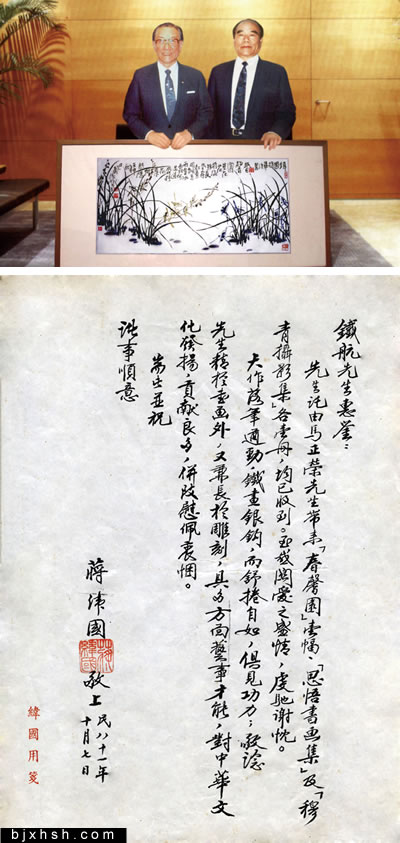 鐵航先生惠鉴：
先生託由馬正榮先生帶来「春馨圖」壹幅、「思悟書画集」及「穆
青攝影集」各壹冊，均已收到。至感関愛之盛情，虔馳谢忱。
大作落筆遒勁，鐵畫銀鈎，而舒捲自如，俱見功力；敬諗
先生精於書画外，又兼長於雕刻，具多方面藝事才能，對中華文
化發揚，貢献良多，併致慰佩衷悃。
耑此並祝
諸事順意
蔣緯國 敬上
民八十一年
十月七日
緯國用箋
bjxhsh.com